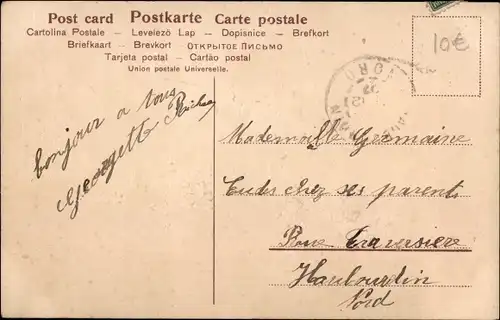 Post card Postkarte Carte postale
Cartolina Postale – Levelező Lap – Dopisnice – Brefkort
Briefkaart – Brevkort – ОТКРЫТОЕ ПИСЬМО
Tarjeta postal – Cartào postal
Union postale Universelle.
10€
NORD
bonjour a tous
Georgett
Mademoiselle Germaine
chez ses parents
Rue Traversière
Haubourdin
Nord